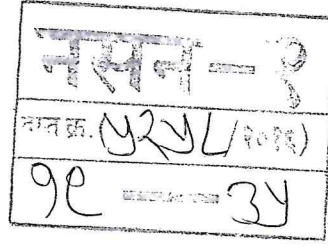 नसन - १
दस्त क्र. (५२५८/२०१६)
१८ - ३५